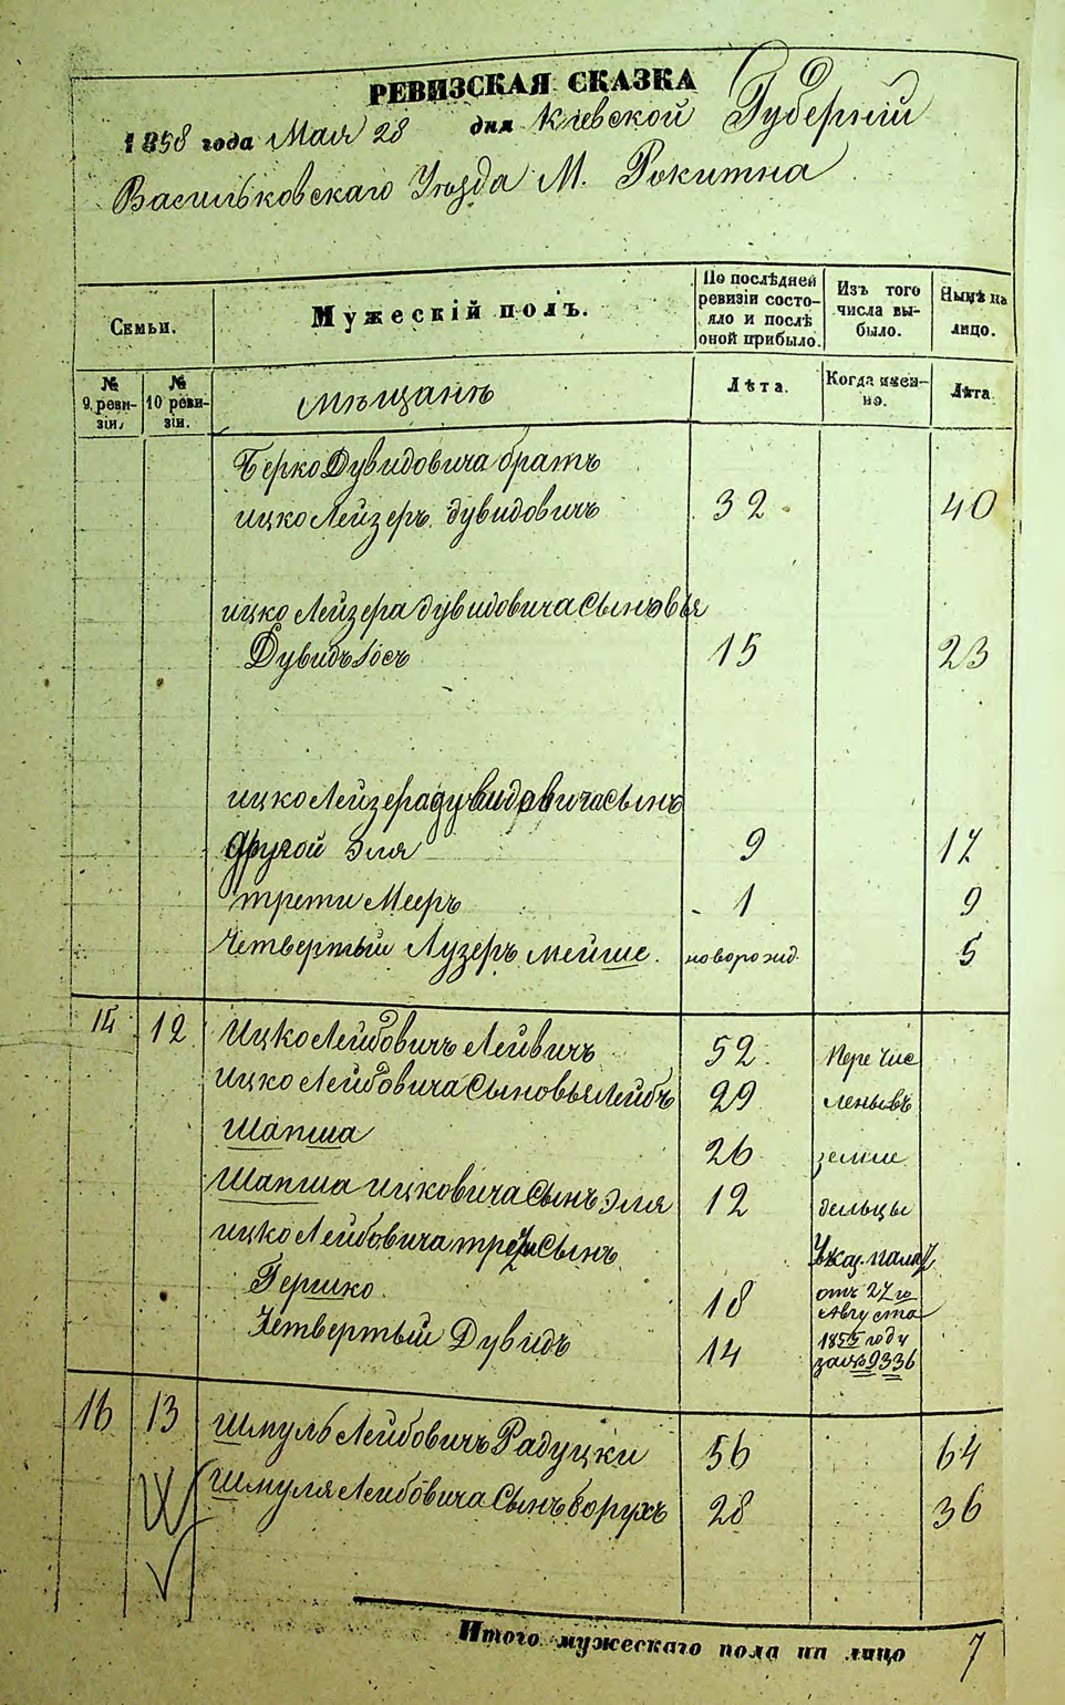 РЕВИЗСКАЯ СКАЗКА
1858 года Мая 28 дня Кіевской Губерніи
Васильковскаго Уезда М. Рокитна
Семьи.
Мужескій полъ.
По послѣдней ревизіи состо-
яло и послѣ
оной прибыло.
Изъ того
числа вы-
было.
Нынѣ на
лицо.
№
9 реви-
зіи.
№
10 реви-
зіи.
Мѣщанѣ
Лѣта.
Когда имен-
но.
Лѣта.
Берко Дувидовича братъ
ицко Лейзеръ дувидовичъ 32 40
ицко Лейзера дувидовича Сыновья
Дувидъ Іосъ 15 23
ицко Лейзера дувидовича Сынъ
другой Эля 9 17
трети Мееръ 1 9
Четвертый Лузеръ Мейше. новорожд. 5
14 12 Ицко Лейбовичъ Лейвичъ 52 Перечис
ицко Лейбовича Сыновья Лейбъ 29 лены въ
Шапша 26 земле
Шапша ицковича Сынъ Эля 12 дельцы
ицко Лейбовича трети Сынъ Указ. пала
Гершко 18 отъ 27 го
Августа
Четвертый Дувидъ 14 1855 году
за № 9336
16 13 Шмуль Лейбовичъ Радуцки 56 64
Шмуля Лейбовича Сынъ борухъ 28 36
Итого мужескаго пола на лицо 7